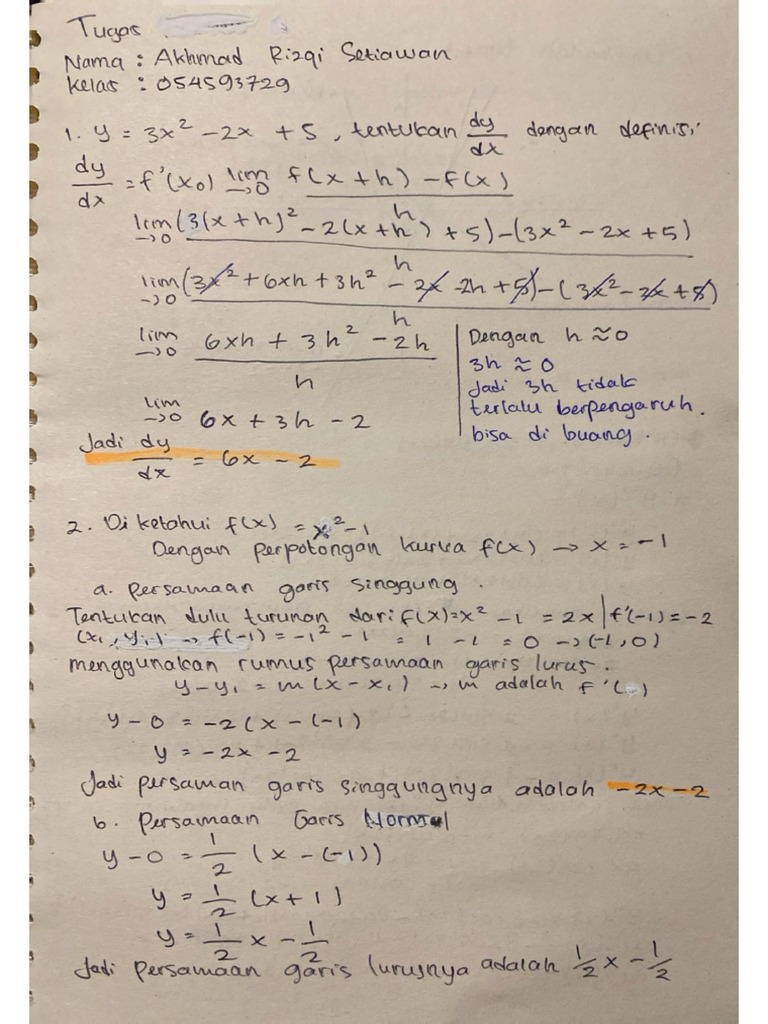 Tugas
Nama : Akhmad Rizqi Setiawan
Kelas : 054593729
1. y = 3x² - 2x + 5, tentukan dy/dx dengan definisi
dy/dx = f'(x₀) lim →0 f(x + h) - f(x) / h
lim →0 (3(x + h)² - 2(x + h) + 5) - (3x² - 2x + 5) / h
lim →0 (3x² + 6xh + 3h² - 2x - 2h + 5) - (3x² - 2x + 5) / h
lim →0 6xh + 3h² - 2h / h
Dengan h ≈ 0
3h ≈ 0
Jadi 3h tidak
terlalu berpengaruh.
bisa di buang.
lim →0 6x + 3h - 2
Jadi dy/dx = 6x - 2
2. Di ketahui f(x) = x² - 1
Dengan perpotongan kurva f(x) → x = -1
a. Persamaan garis singgung.
Tentukan dulu turunan dari f(x) = x² - 1 = 2x | f'(-1) = -2
(x₁, y₁) → f(-1) = -1² - 1 = 1 - 1 = 0 → (-1, 0)
menggunakan rumus persamaan garis lurus.
y - y₁ = m(x - x₁) → m adalah f'( )
y - 0 = -2(x - (-1)
y = -2x - 2
Jadi persaman garis singgungnya adalah -2x - 2
b. Persamaan Garis Normal
y - 0 = 1/2 (x - (-1))
y = 1/2 (x + 1)
y = 1/2 x - 1/2
Jadi Persamaan garis lurusnya adalah 1/2 x - 1/2